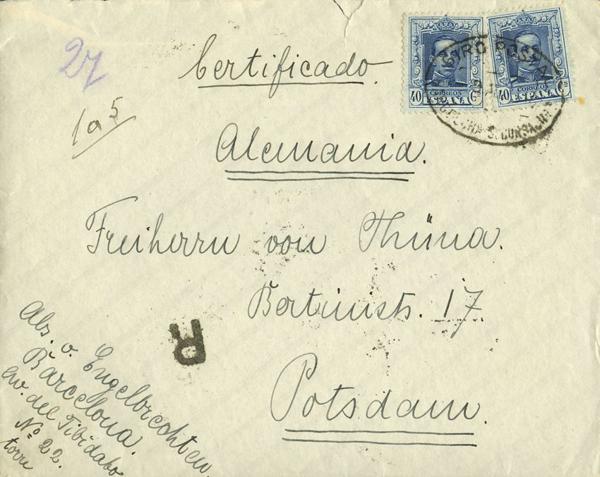 27
Certificado.
1a5
Alemania.
Freiherrn von Thüna.
Bertinistr. 17.
Potsdam.
R
Abs. v. Engelbrechten.
Barcelona.
Av. del Tibidabo
No 22.
torre
40 CORREOS 40 Cs
ESPAÑA
40 CORREOS 40 Cs
ESPAÑA
GIRO POSTAL